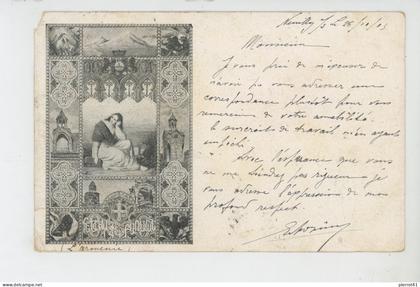 Neuilly s/S le 26/10/03
Monsieur
Je vous prie de m'excuser de
n'avoir pu vous adresser une
correspondance plutôt pour vous
remercier de votre amabilité.
le surcroits de travail m'en ayant
empêché
Avec l'espérance que vous
ne me tiendez pas rigueur je
vous adresse l'expression de mon
profond respect.
(L'armenie)